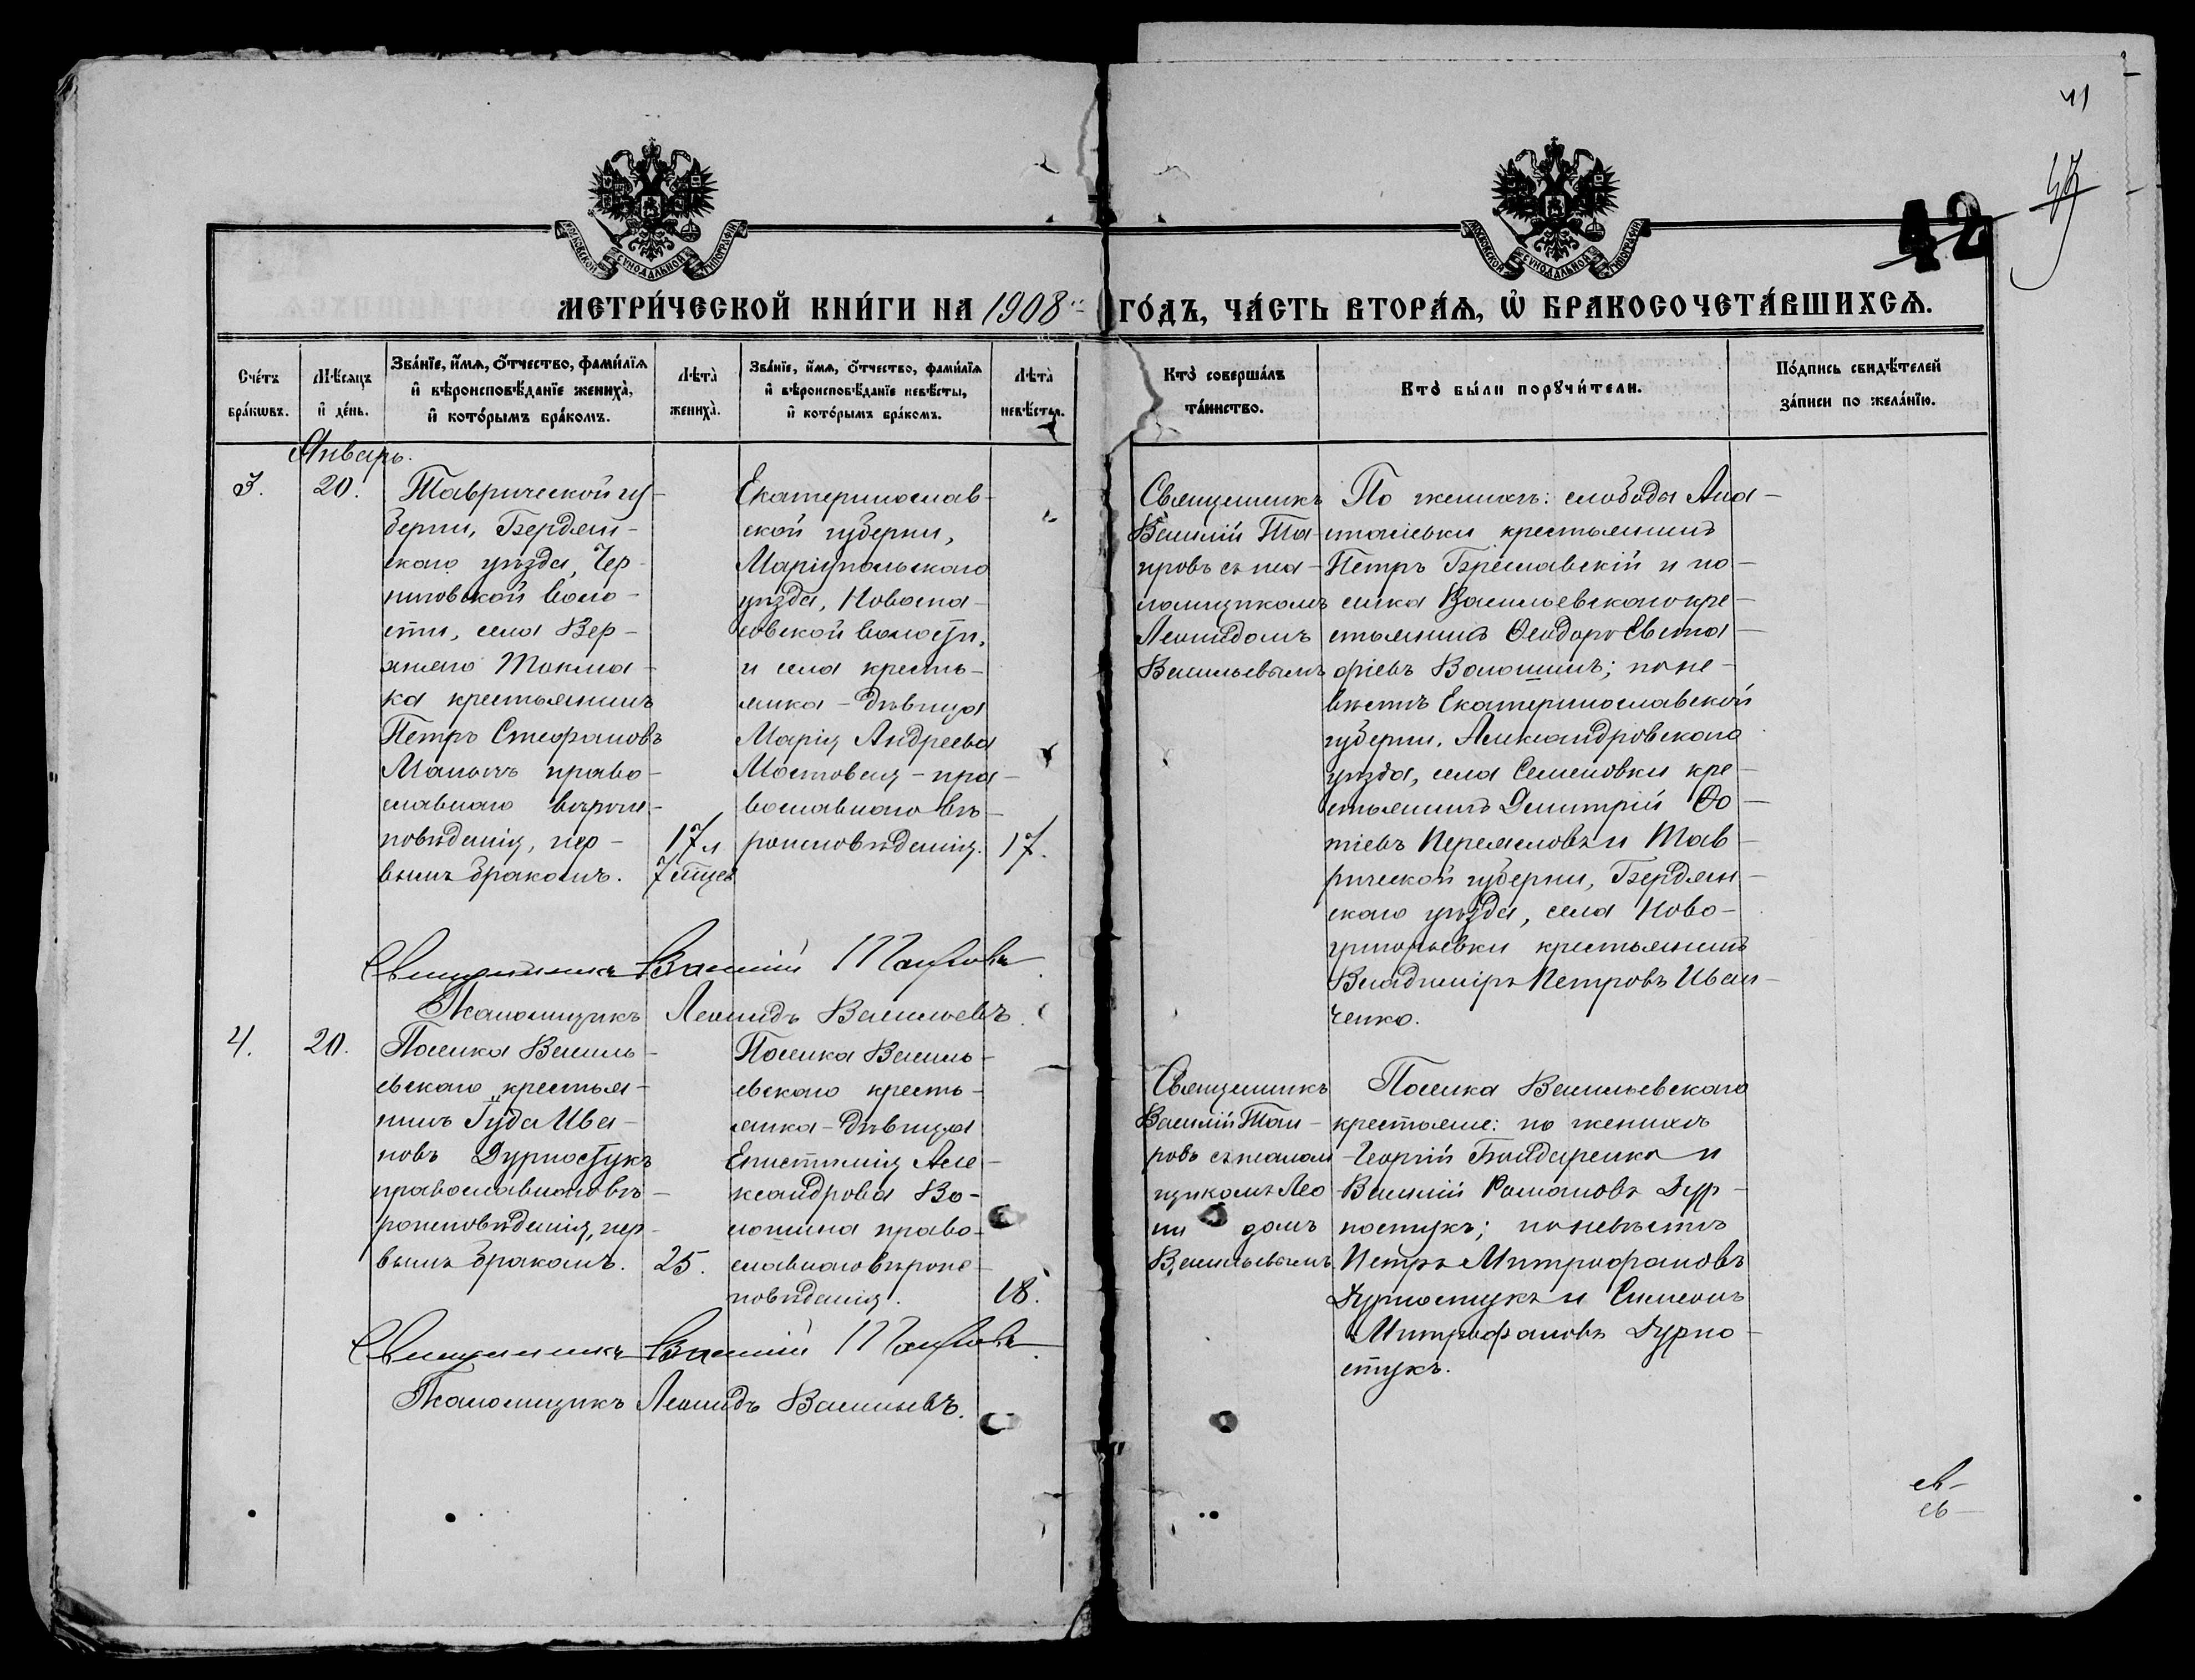 41
42
МЕТРИ́ЧЕСКОЙ КНИ́ГИ НА 1908 ГО́ДЪ, ЧА́СТЬ ВТОРА́Ѧ, Ѡ҆ БРАКОСОЧЕТА́ВШИХСѦ.
Сче́тъ бра́кѡвъ.
Мѣ́сѧцъ и҆ де́нь.
Зва́нїе, и҆́мѧ, ѻ҆́тчество, фами́лїѧ и҆ вѣроисповѣ́данїе жениха̀, и҆ кото́рымъ бра́комъ.
Лѣта̀ жениха̀.
Зва́нїе, и҆́мѧ, ѻ҆́тчество, фами́лїѧ и҆ вѣроисповѣ́данїе невѣ́сты, и҆ кото́рымъ бра́комъ.
Лѣта̀ невѣ́сты.
Кто̀ соверша́лъ та́инство.
Кто̀ бы́ли порꙋчи́тели.
По́дпись свидѣ́телей за́писи по жела́нїю.
Январь.
3.
20.
Таврической гу-
берніи, Бердян-
скаго уѣзда, Чер-
ниговской воло-
сти, села Вер-
хняго Токма-
ка крестьянинъ
Петръ Стефановъ
право-
славнаго вѣроис-
повѣданія, пер-
вымъ бракомъ.
17 л
7 мцев
Екатеринослав-
ской губерніи,
Маріупольскаго
уѣзда, Новоспа-
совской волости,
и села кресть-
янка - дѣвица
Марія Андреева
Мостовая - пра-
вославнаго вѣ-
роисповѣданія.
17.
Священникъ
Василій Таи-
ровъ съ пса-
ломщикомъ
Леонидомъ
Васильевымъ
По женихѣ: слободы Ана-
стасіевки крестьянинъ
Петръ Бреславскій и по-
селка Васильевскаго кре-
стьянинъ Ѳеодоръ Евста-
фіевъ Волошинъ; по не-
вѣстѣ Екатеринославской
губерніи, Александровскаго
уѣзда, села Семеновки кре-
стьянинъ Димитрій Фо-
тіевъ и Тав-
рической губерніи, Бердян-
скаго уѣзда, села Ново-
григорьевки крестьянинъ
Владиміръ Петровъ Иван-
ченко.
Священникъ Василій Таировъ
Псаломщикъ Леонидъ Васильевъ.
4.
20.
Поселка Василь-
евскаго крестья-
нинъ Іуда Ива-
новъ Дурностукъ
православнаго вѣ-
роисповѣданія, пер-
вымъ бракомъ.
25.
Поселка Василь-
евскаго кресть-
янка - дѣвица
Епистимія Але-
ксандрова Во-
лошина право-
славнаго вѣроис-
повѣданія.
18.
Священникъ
Василій Таи-
ровъ съ псалом
щикомъ Лео
ни домъ
Васильевымъ.
Поселка Васильевскаго
крестьяне: по женихѣ
Георгій Бондаренко и
Василій Романовъ Дур-
ностукъ; по невѣстѣ
Петръ Митрофановъ
Дурностукъ и Симеонъ
Митрофановъ Дурно-
стукъ.
Священникъ Василій Таировъ.
Псаломщикъ Леонидъ Васильевъ.